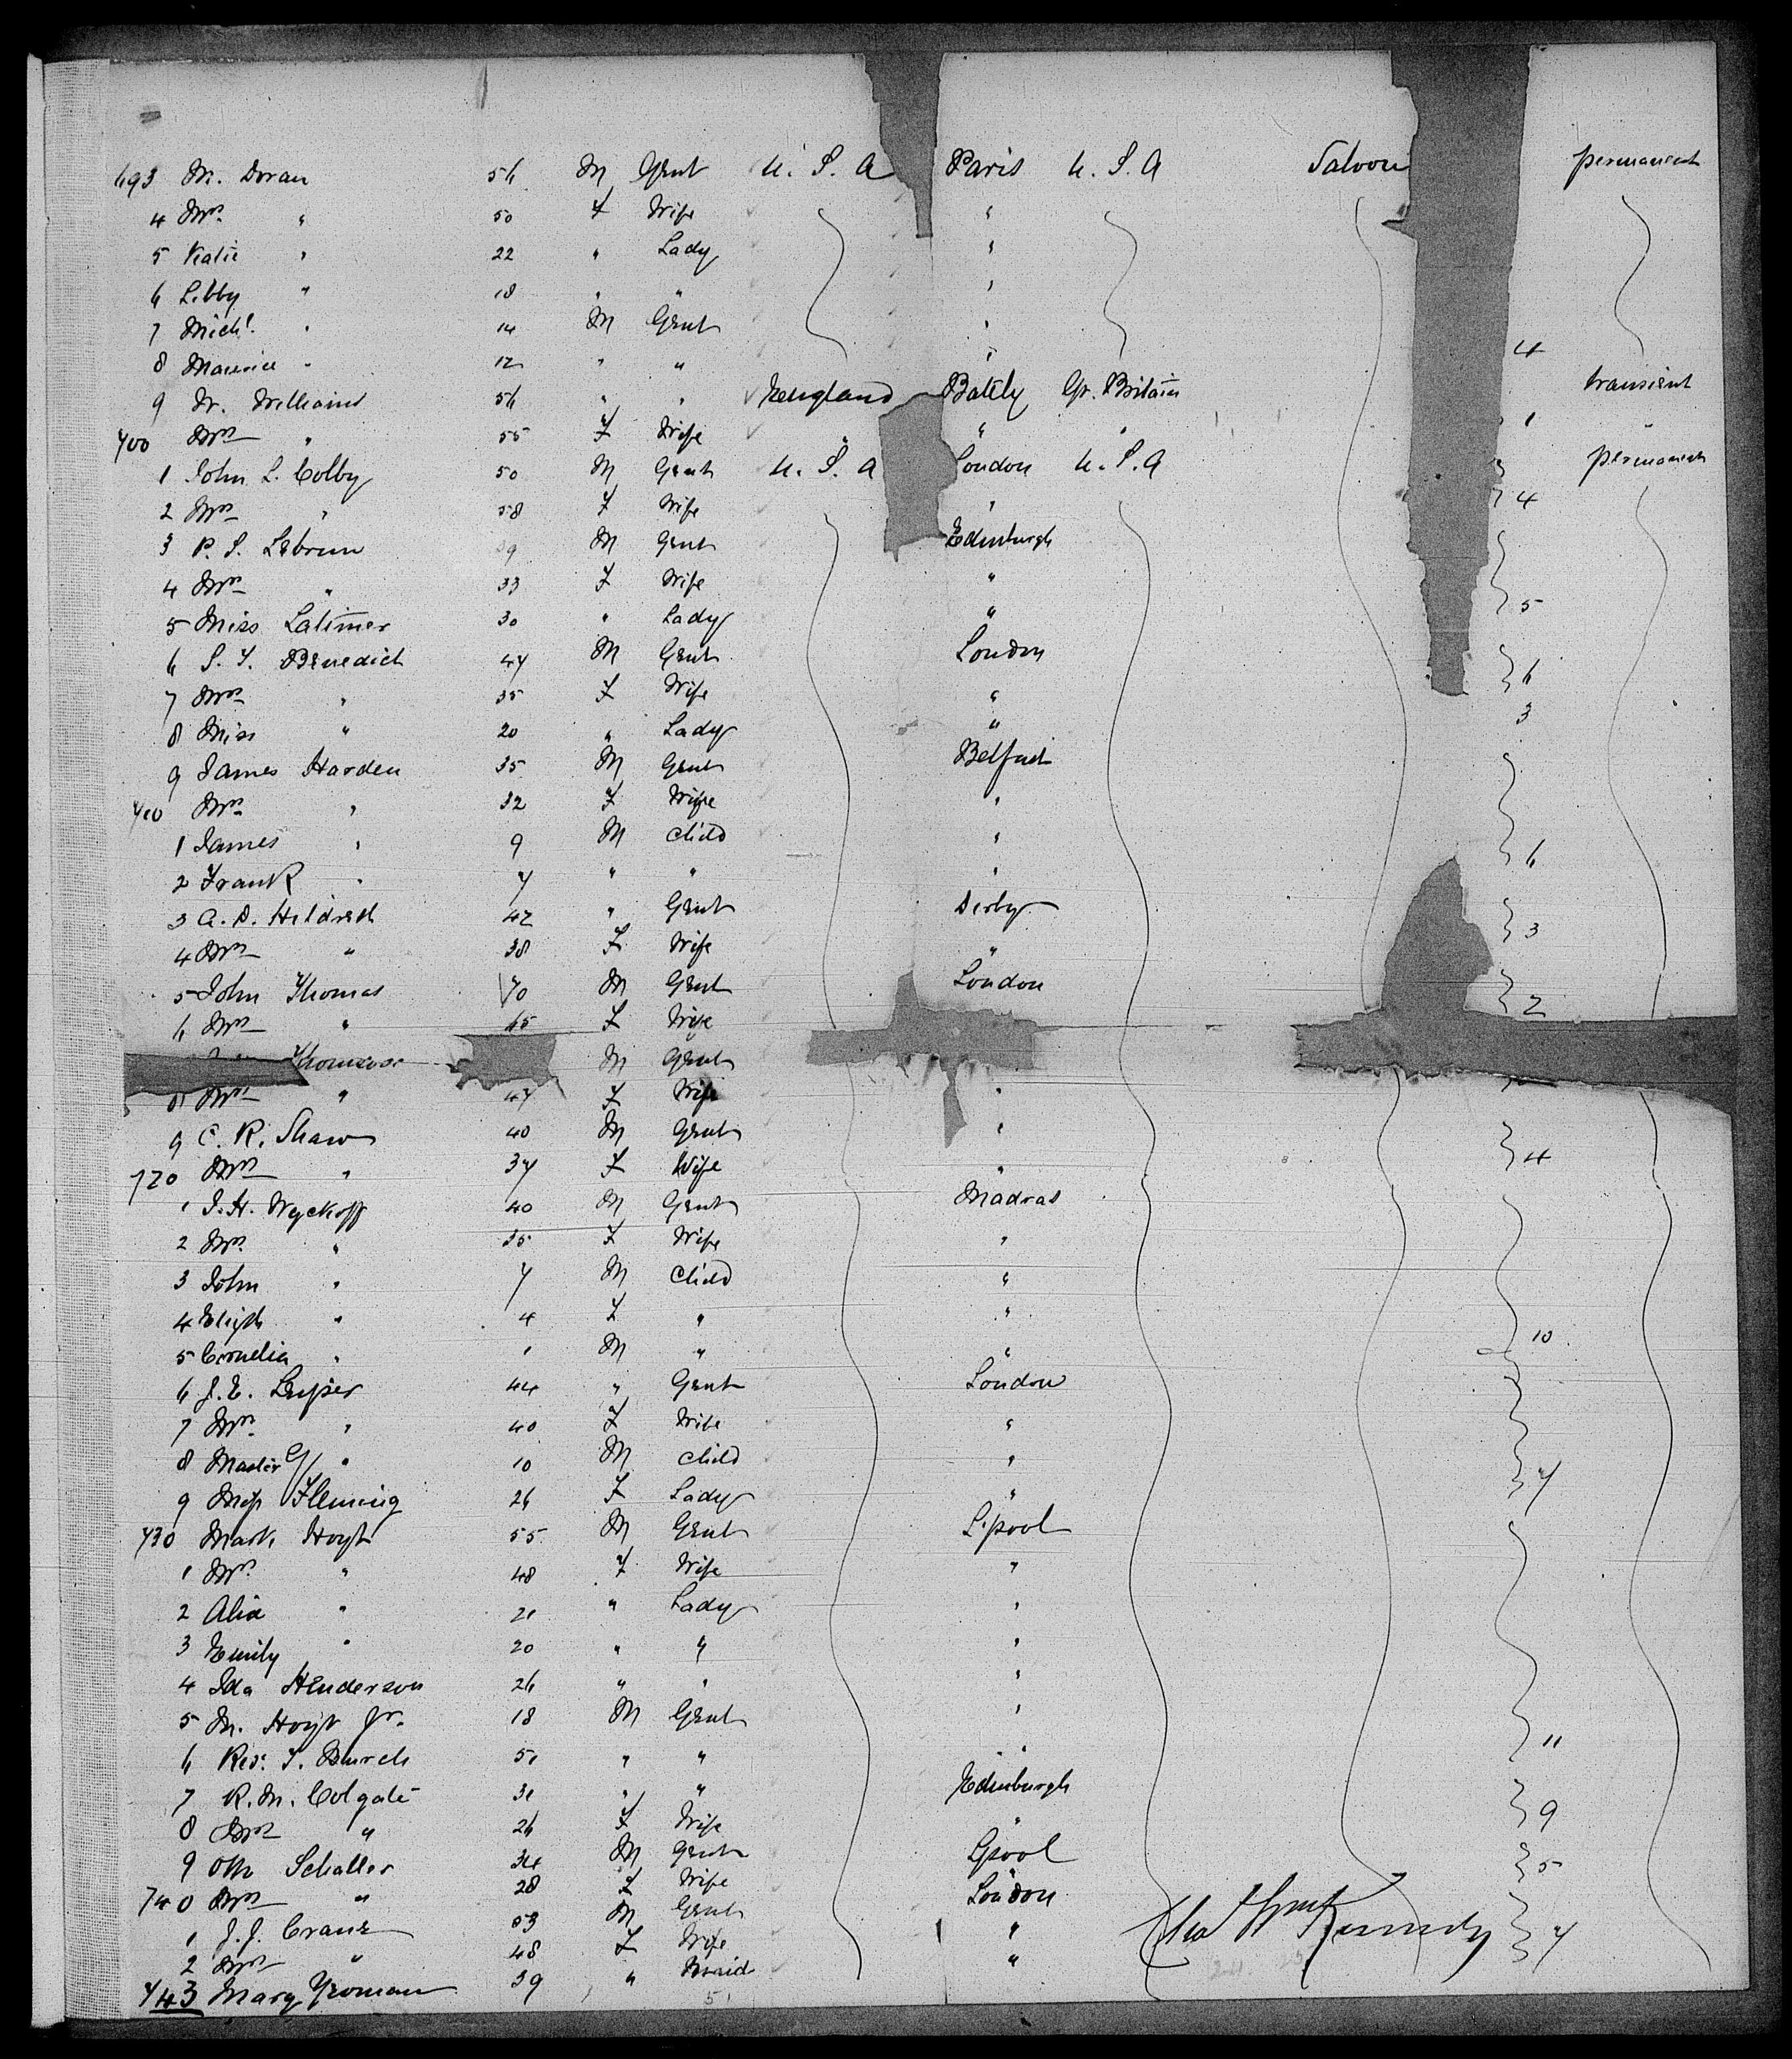 693 M. Doran 56 M Gent U. S. A Paris U. S. A Saloon permanent
4 Mrs " 50 F Wife "
5 Katie " 22 " Lady "
6 Libby " 18 " " "
7 Michl. " 14 M Gent "
8 Maurice " 12 " " " 4
9 W. Williams 56 " " England Bately Gr. Britain transient
700 Mrs " 55 F Wife " " " 1
1 John L. Colby 50 M Gent U. S. A London U. S. A permanent
2 Mrs " 58 F Wife " 4
3 P. S. Lebrun 39 M Gent Edinburgh
4 Mrs " 33 F Wife "
5 Miss Latimer 30 " Lady " 5
6 S. T. Benedict 47 M Gent London
7 Mrs " 35 F Wife " 6
8 Miss " 20 " Lady " 3
9 James Harden 35 M Gent Belfast
710 Mrs " 32 F Wife "
1 James " 9 M Child "
2 Frank " 7 " " " 6
3 A. D. Hildreth 42 " Gent Derby
4 Mrs " 38 F Wife " 3
5 John Thomas 70 M Gent London
6 Mrs " 65 F Wife 2
Thomson M Gent
8 Mrs " 47 F Wife "
9 C. R. Shaw 40 M Gent "
720 Mrs " 37 F Wife " 4
1 J. H. Wyckoff 40 M Gent Madras
2 Mrs " 35 F Wife "
3 John " 7 M Child "
4 " 4 F " "
5 Cornelia " 1 M " " 10
6 J. E. Leiper 44 " Gent London
7 Mrs " 40 F Wife "
8 Master G " 10 M Child "
9 Miss Fleming 26 F Lady " 7
730 Mark Hoyt 55 M Gent L.pool
1 Mrs " 48 F Wife "
2 " 21 " Lady "
3 Emily " 20 " " "
4 Ida Henderson 26 " " "
5 M. Hoyt Jr. 18 M Gent "
6 Rev. T. Burch 51 " " " 11
7 R. M. Colgate 31 " " Edinburgh
8 Mrs " 26 F Wife " 9
9 Otto Schaller 34 M Gent Lpool
740 Mrs " 28 F Wife London 5
1 J. J. Crane 53 M Gent "
2 Mrs " 48 F Wife " 7
743 Mary Yeoman 39 " Maid